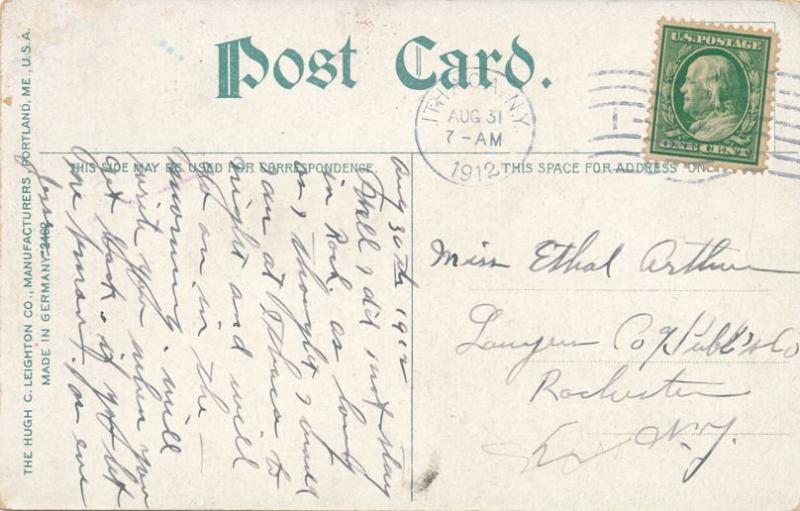 Post Card.
THE HUGH C. LEIGHTON CO., MANUFACTURERS, PORTLAND, ME., U.S.A.
MADE IN GERMANY 2482
THIS SIDE MAY BE USED FOR CORRESPONDENCE.
THIS SPACE FOR ADDRESS ONLY
ITHACA, N.Y.
AUG 31
7-AM
1912
U.S. POSTAGE
ONE CENT
Aug 30th 1912
Well I did not stay
in Roch as long
as I thought I should
am at Ithaca to
night and will
go on in the
morning. will
write you when you
get back. if you let
me know.
Miss Ethal Arthur
Lawyers Co Publ'n Co
Rochester
N.Y.